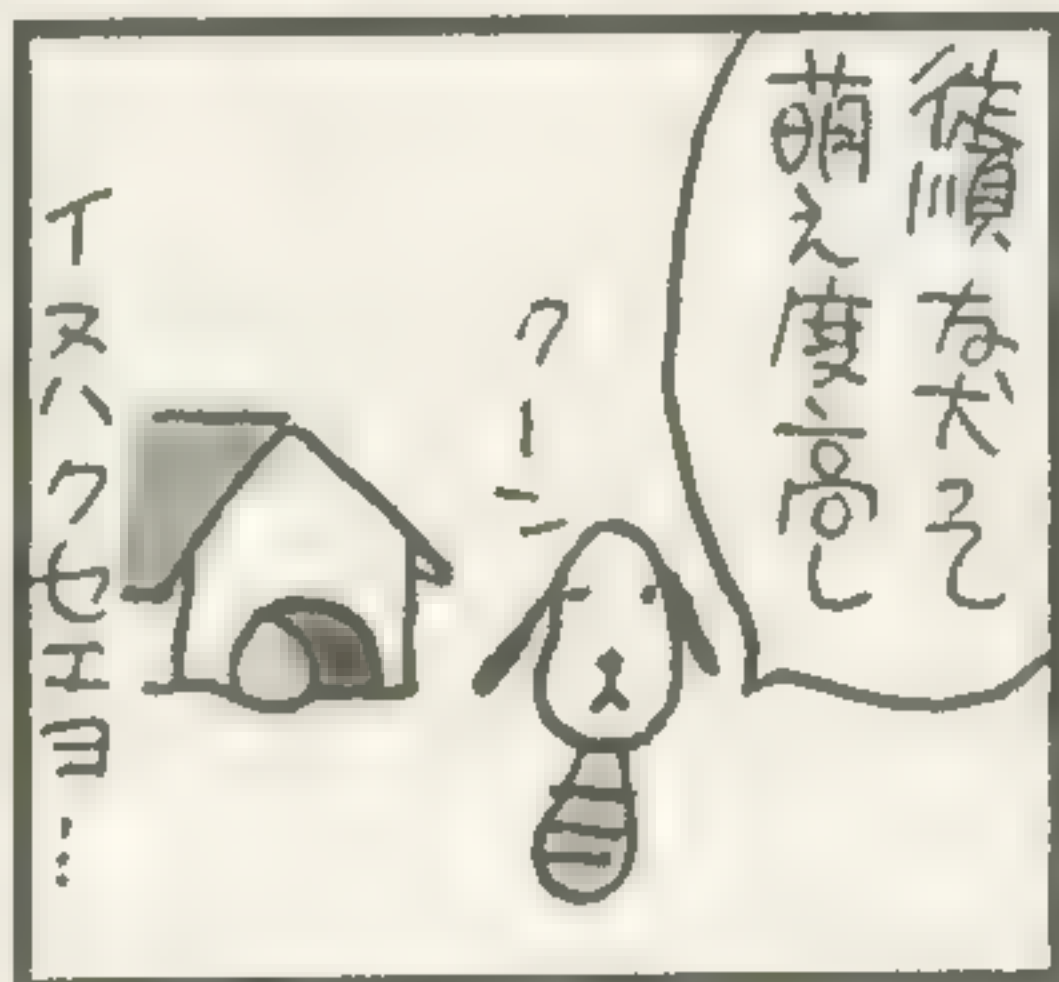 従順な犬って
萌え度高し
クーン
イヌハクセエヨ…